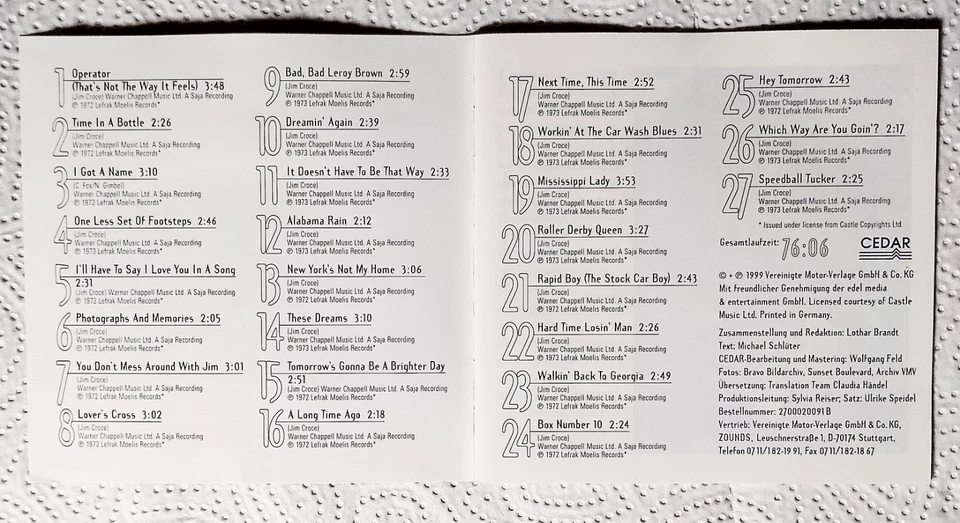 1 Operator
(That's Not The Way It Feels) 3:48
(Jim Croce) Warner Chappell Music Ltd. A Saja Recording
℗ 1972 Lefrak Moelis Records*
2 Time In A Bottle 2:26
(Jim Croce)
Warner Chappell Music Ltd. A Saja Recording
℗ 1972 Lefrak Moelis Records*
3 I Got A Name 3:10
(C. Fox/N. Gimbel)
Warner Chappell Music Ltd. A Saja Recording
℗ 1973 Lefrak Moelis Records*
4 One Less Set Of Footsteps 2:46
(Jim Croce)
Warner Chappell Music Ltd. A Saja Recording
℗ 1973 Lefrak Moelis Records*
5 I'll Have To Say I Love You In A Song
2:31
(Jim Croce) Warner Chappell Music Ltd. A Saja Recording
℗ 1973 Lefrak Moelis Records*
6 Photographs And Memories 2:05
(Jim Croce)
Warner Chappell Music Ltd. A Saja Recording
℗ 1972 Lefrak Moelis Records*
7 You Don't Mess Around With Jim 3:01
(Jim Croce)
Warner Chappell Music Ltd. A Saja Recording
℗ 1972 Lefrak Moelis Records*
8 Lover's Cross 3:02
(Jim Croce)
Warner Chappell Music Ltd. A Saja Recording
℗ 1973 Lefrak Moelis Records*
9 Bad, Bad Leroy Brown 2:59
(Jim Croce)
Warner Chappell Music Ltd. A Saja Recording
℗ 1973 Lefrak Moelis Records*
10 Dreamin' Again 2:39
(Jim Croce)
Warner Chappell Music Ltd. A Saja Recording
℗ 1973 Lefrak Moelis Records*
11 It Doesn't Have To Be That Way 2:33
(Jim Croce)
Warner Chappell Music Ltd. A Saja Recording
℗ 1973 Lefrak Moelis Records*
12 Alabama Rain 2:12
(Jim Croce)
Warner Chappell Music Ltd. A Saja Recording
℗ 1973 Lefrak Moelis Records*
13 New York's Not My Home 3:06
(Jim Croce)
Warner Chappell Music Ltd. A Saja Recording
℗ 1972 Lefrak Moelis Records*
14 These Dreams 3:10
(Jim Croce)
Warner Chappell Music Ltd. A Saja Recording
℗ 1973 Lefrak Moelis Records*
15 Tomorrow's Gonna Be A Brighter Day
2:51
(Jim Croce) Warner Chappell Music Ltd. A Saja Recording
℗ 1972 Lefrak Moelis Records*
16 A Long Time Ago 2:18
(Jim Croce)
Warner Chappell Music Ltd. A Saja Recording
℗ 1972 Lefrak Moelis Records*
17 Next Time, This Time 2:52
(Jim Croce)
Warner Chappell Music Ltd. A Saja Recording
℗ 1973 Lefrak Moelis Records*
18 Workin' At The Car Wash Blues 2:31
(Jim Croce)
Warner Chappell Music Ltd. A Saja Recording
℗ 1973 Lefrak Moelis Records*
19 Mississippi Lady 3:53
(Jim Croce)
Warner Chappell Music Ltd. A Saja Recording
℗ 1973 Lefrak Moelis Records*
20 Roller Derby Queen 3:27
(Jim Croce)
Warner Chappell Music Ltd. A Saja Recording
℗ 1973 Lefrak Moelis Records*
21 Rapid Boy (The Stock Car Boy) 2:43
(Jim Croce)
Warner Chappell Music Ltd. A Saja Recording
℗ 1972 Lefrak Moelis Records*
22 Hard Time Losin' Man 2:26
(Jim Croce)
Warner Chappell Music Ltd. A Saja Recording
℗ 1972 Lefrak Moelis Records*
23 Walkin' Back To Georgia 2:49
(Jim Croce)
Warner Chappell Music Ltd. A Saja Recording
℗ 1972 Lefrak Moelis Records*
24 Box Number 10 2:24
(Jim Croce)
Warner Chappell Music Ltd. A Saja Recording
℗ 1972 Lefrak Moelis Records*
25 Hey Tomorrow 2:43
(Jim Croce)
Warner Chappell Music Ltd. A Saja Recording
℗ 1972 Lefrak Moelis Records*
26 Which Way Are You Goin'? 2:17
(Jim Croce)
Warner Chappell Music Ltd. A Saja Recording
℗ 1973 Lefrak Moelis Records*
27 Speedball Tucker 2:25
(Jim Croce)
Warner Chappell Music Ltd. A Saja Recording
℗ 1973 Lefrak Moelis Records*
* Issued under license from Castle Copyrights Ltd.
Gesamtlaufzeit: 76:06 CEDAR
© + ℗ 1999 Vereinigte Motor-Verlage GmbH & Co. KG
Mit freundlicher Genehmigung der edel media
& entertainment GmbH. Licensed courtesy of Castle
Music Ltd. Printed in Germany.
Zusammenstellung und Redaktion: Lothar Brandt
Text: Michael Schlüter
CEDAR-Bearbeitung und Mastering: Wolfgang Feld
Fotos: Bravo Bildarchiv, Sunset Boulevard, Archiv VMV
Übersetzung: Translation Team Claudia Händel
Produktionsleitung: Sylvia Reiser; Satz: Ulrike Speidel
Bestellnummer: 2700020091 B
Vertrieb: Vereinigte Motor-Verlage GmbH & Co. KG,
ZOUNDS, Leuschnerstraße 1, D-70174 Stuttgart,
Telefon 07 11/1 82-19 91, Fax 07 11/1 82-18 67